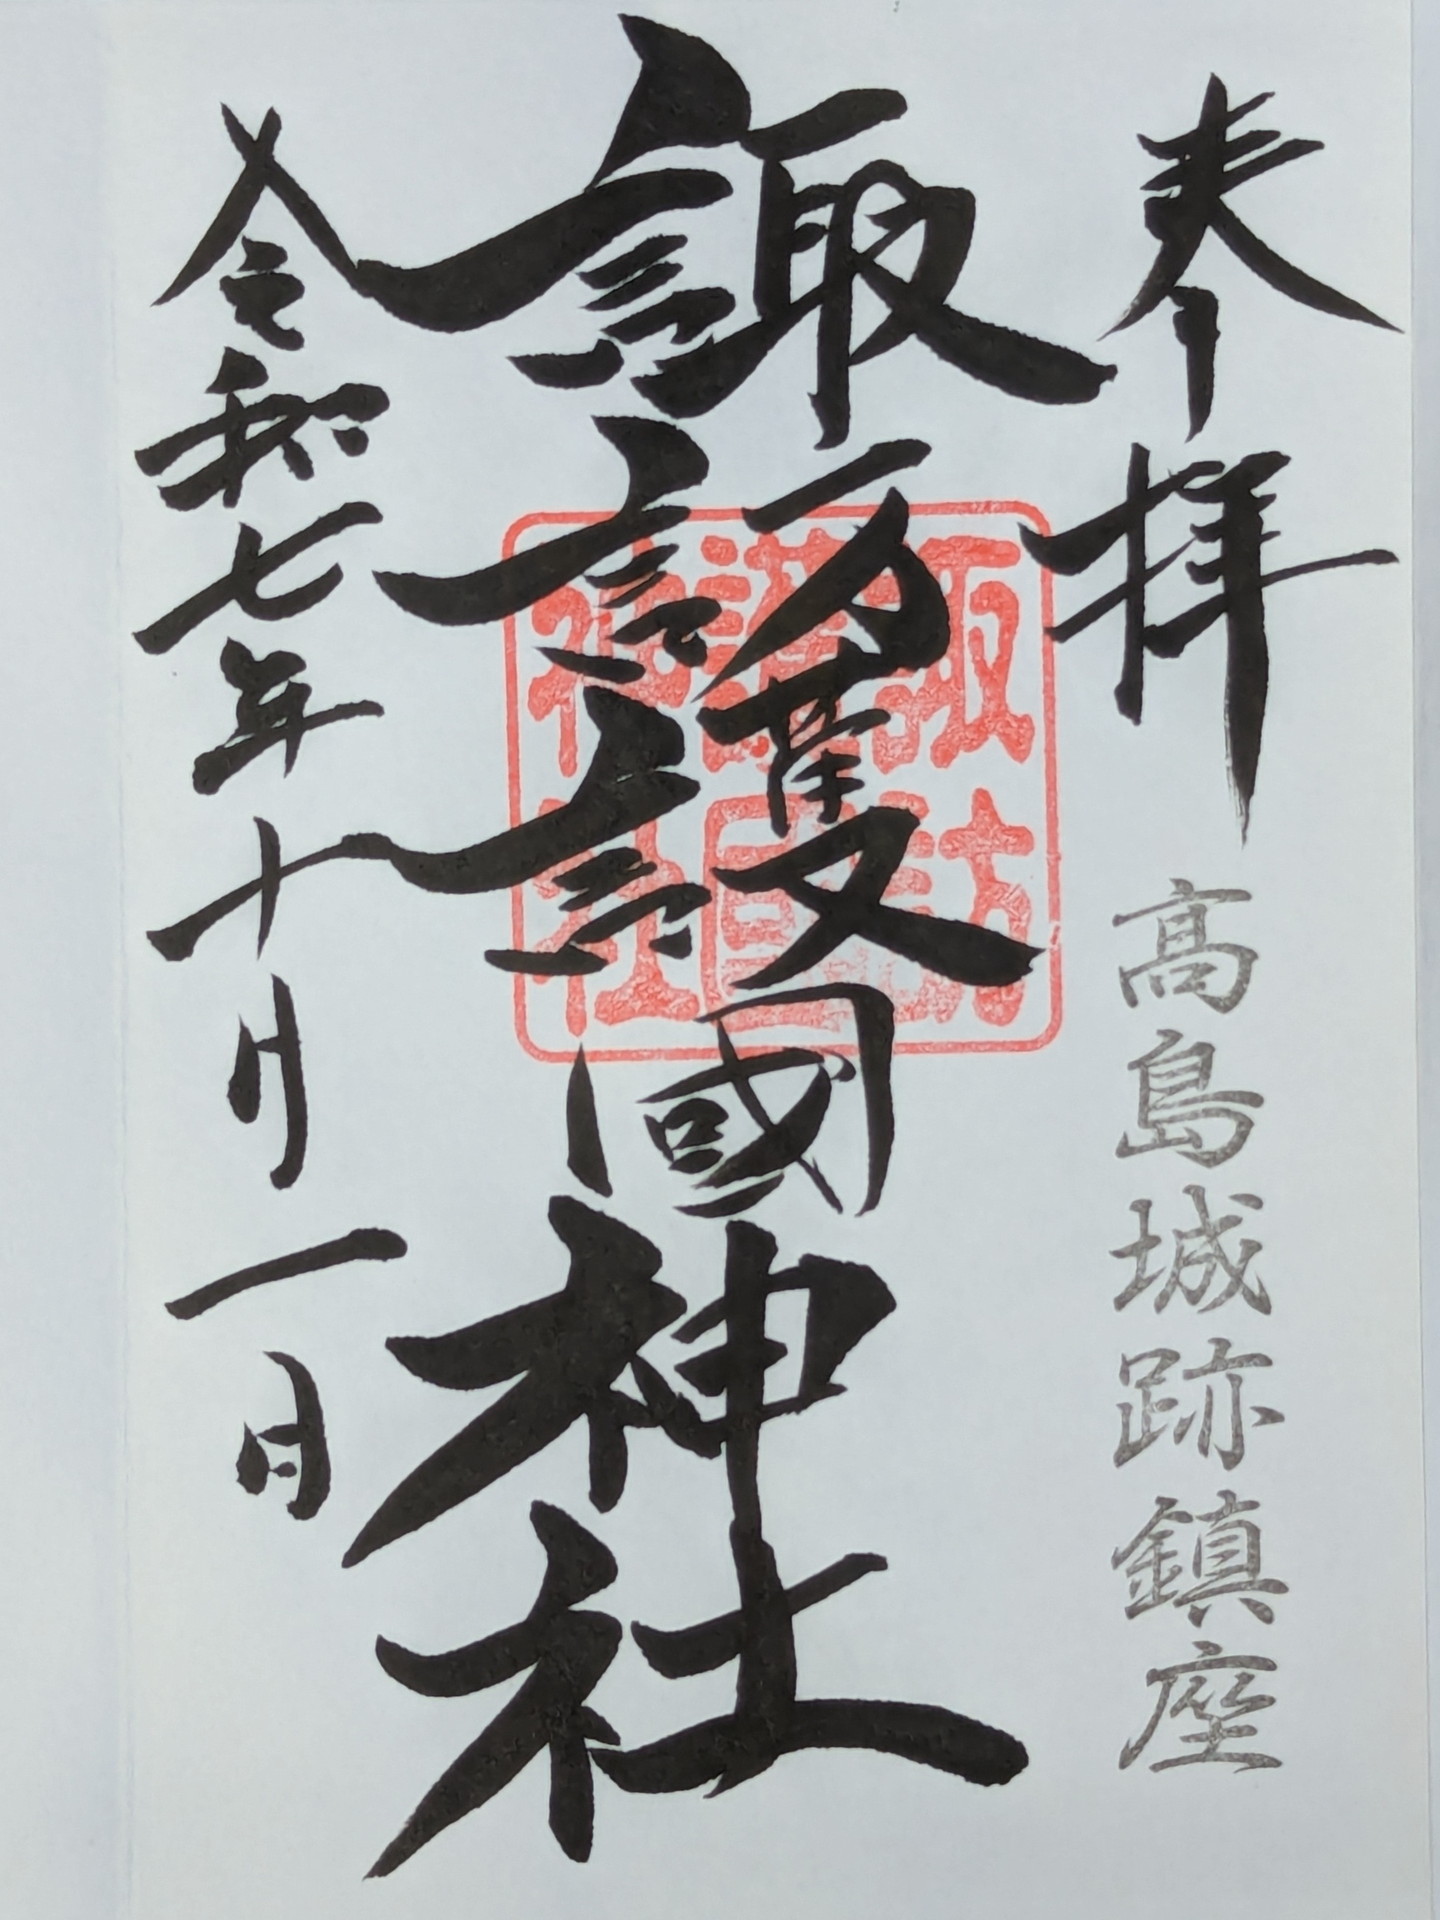 奉拝
高島城跡鎮座
諏訪護國神社
諏訪
護国
神社
令和七年十月一日